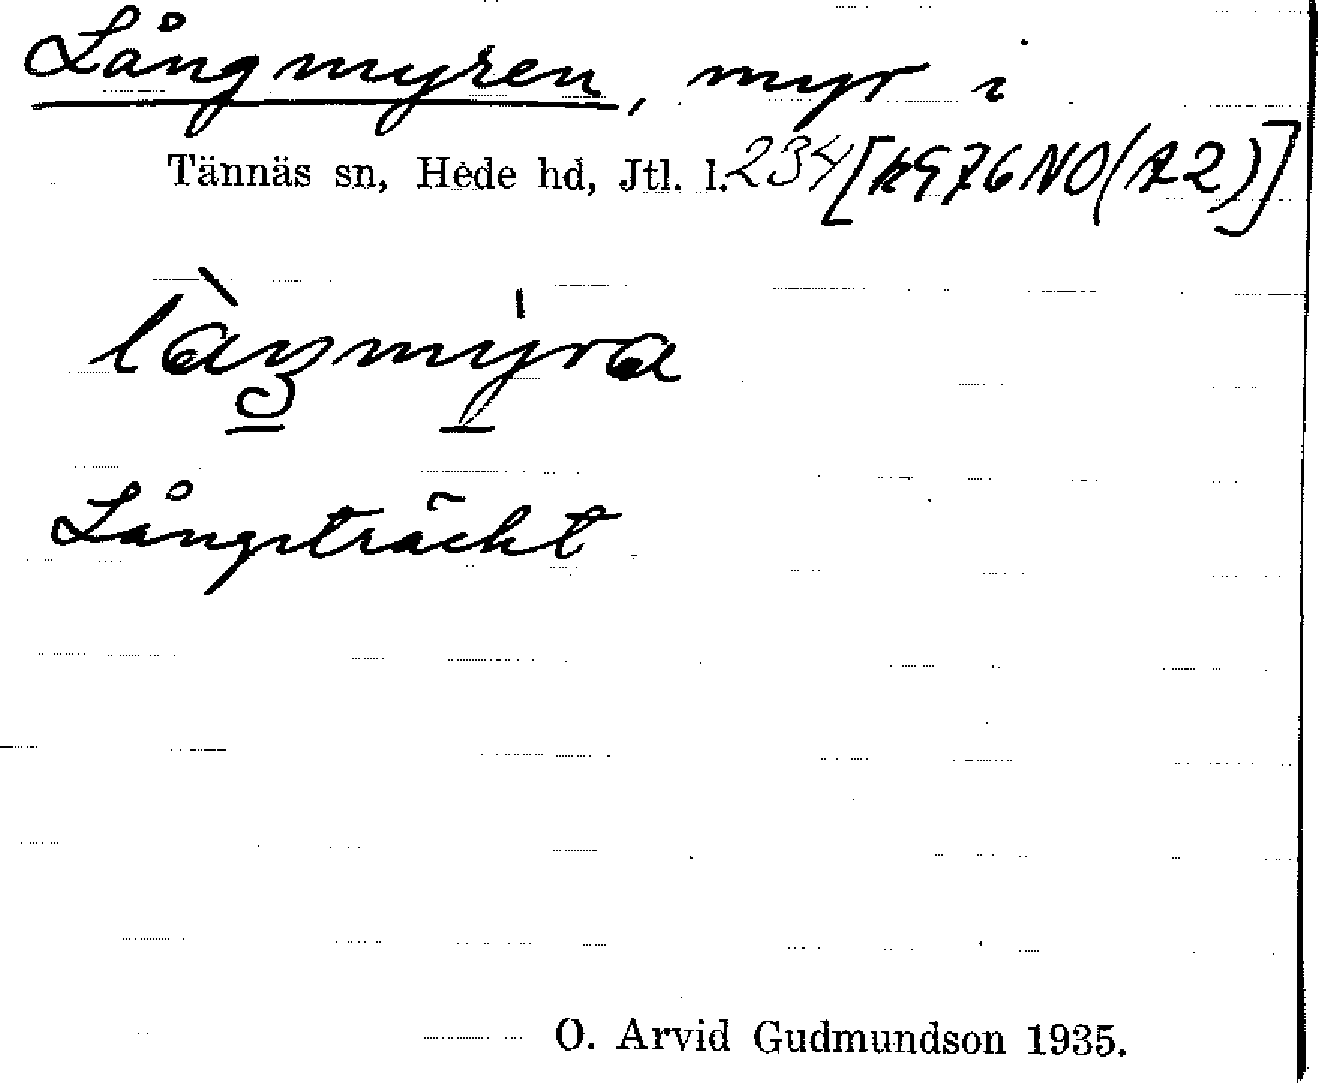 Långmyren, myr i
Tännäs sn, Hede hd, Jtl. l. 234 [k976NO(A2)]
Långsträckt
O. Arvid Gudmundson 1935.